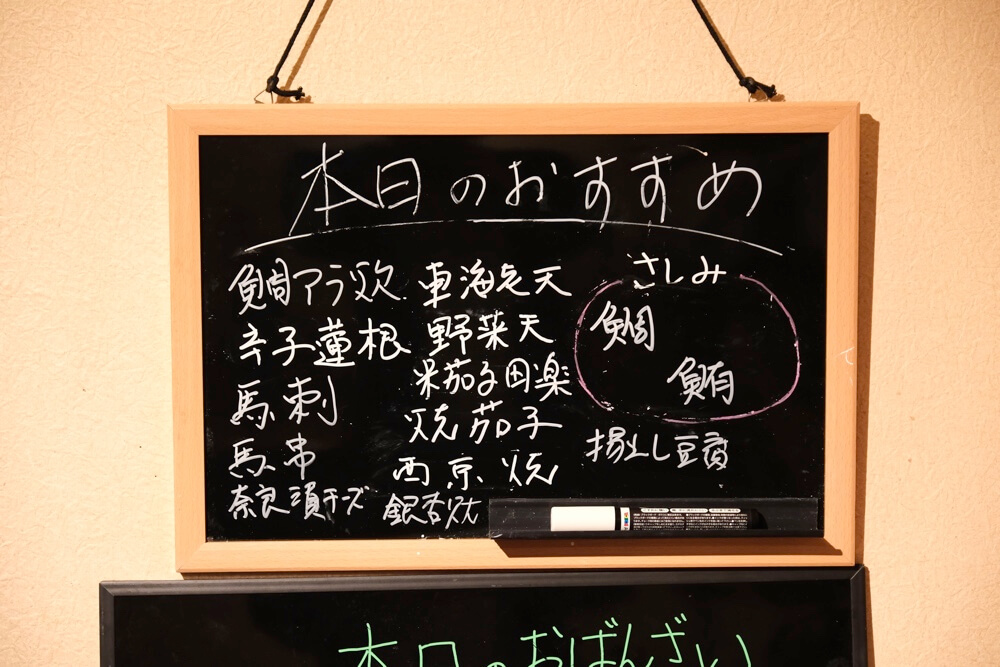 本日のおすすめ
鯛アラ炊
辛子蓮根
馬刺
馬串
奈良漬チーズ
車海老天
野菜天
米茄子田楽
焼茄子
西京焼
銀杏
さしみ
鯛
鮪
揚出し豆腐
本日のおばんざい